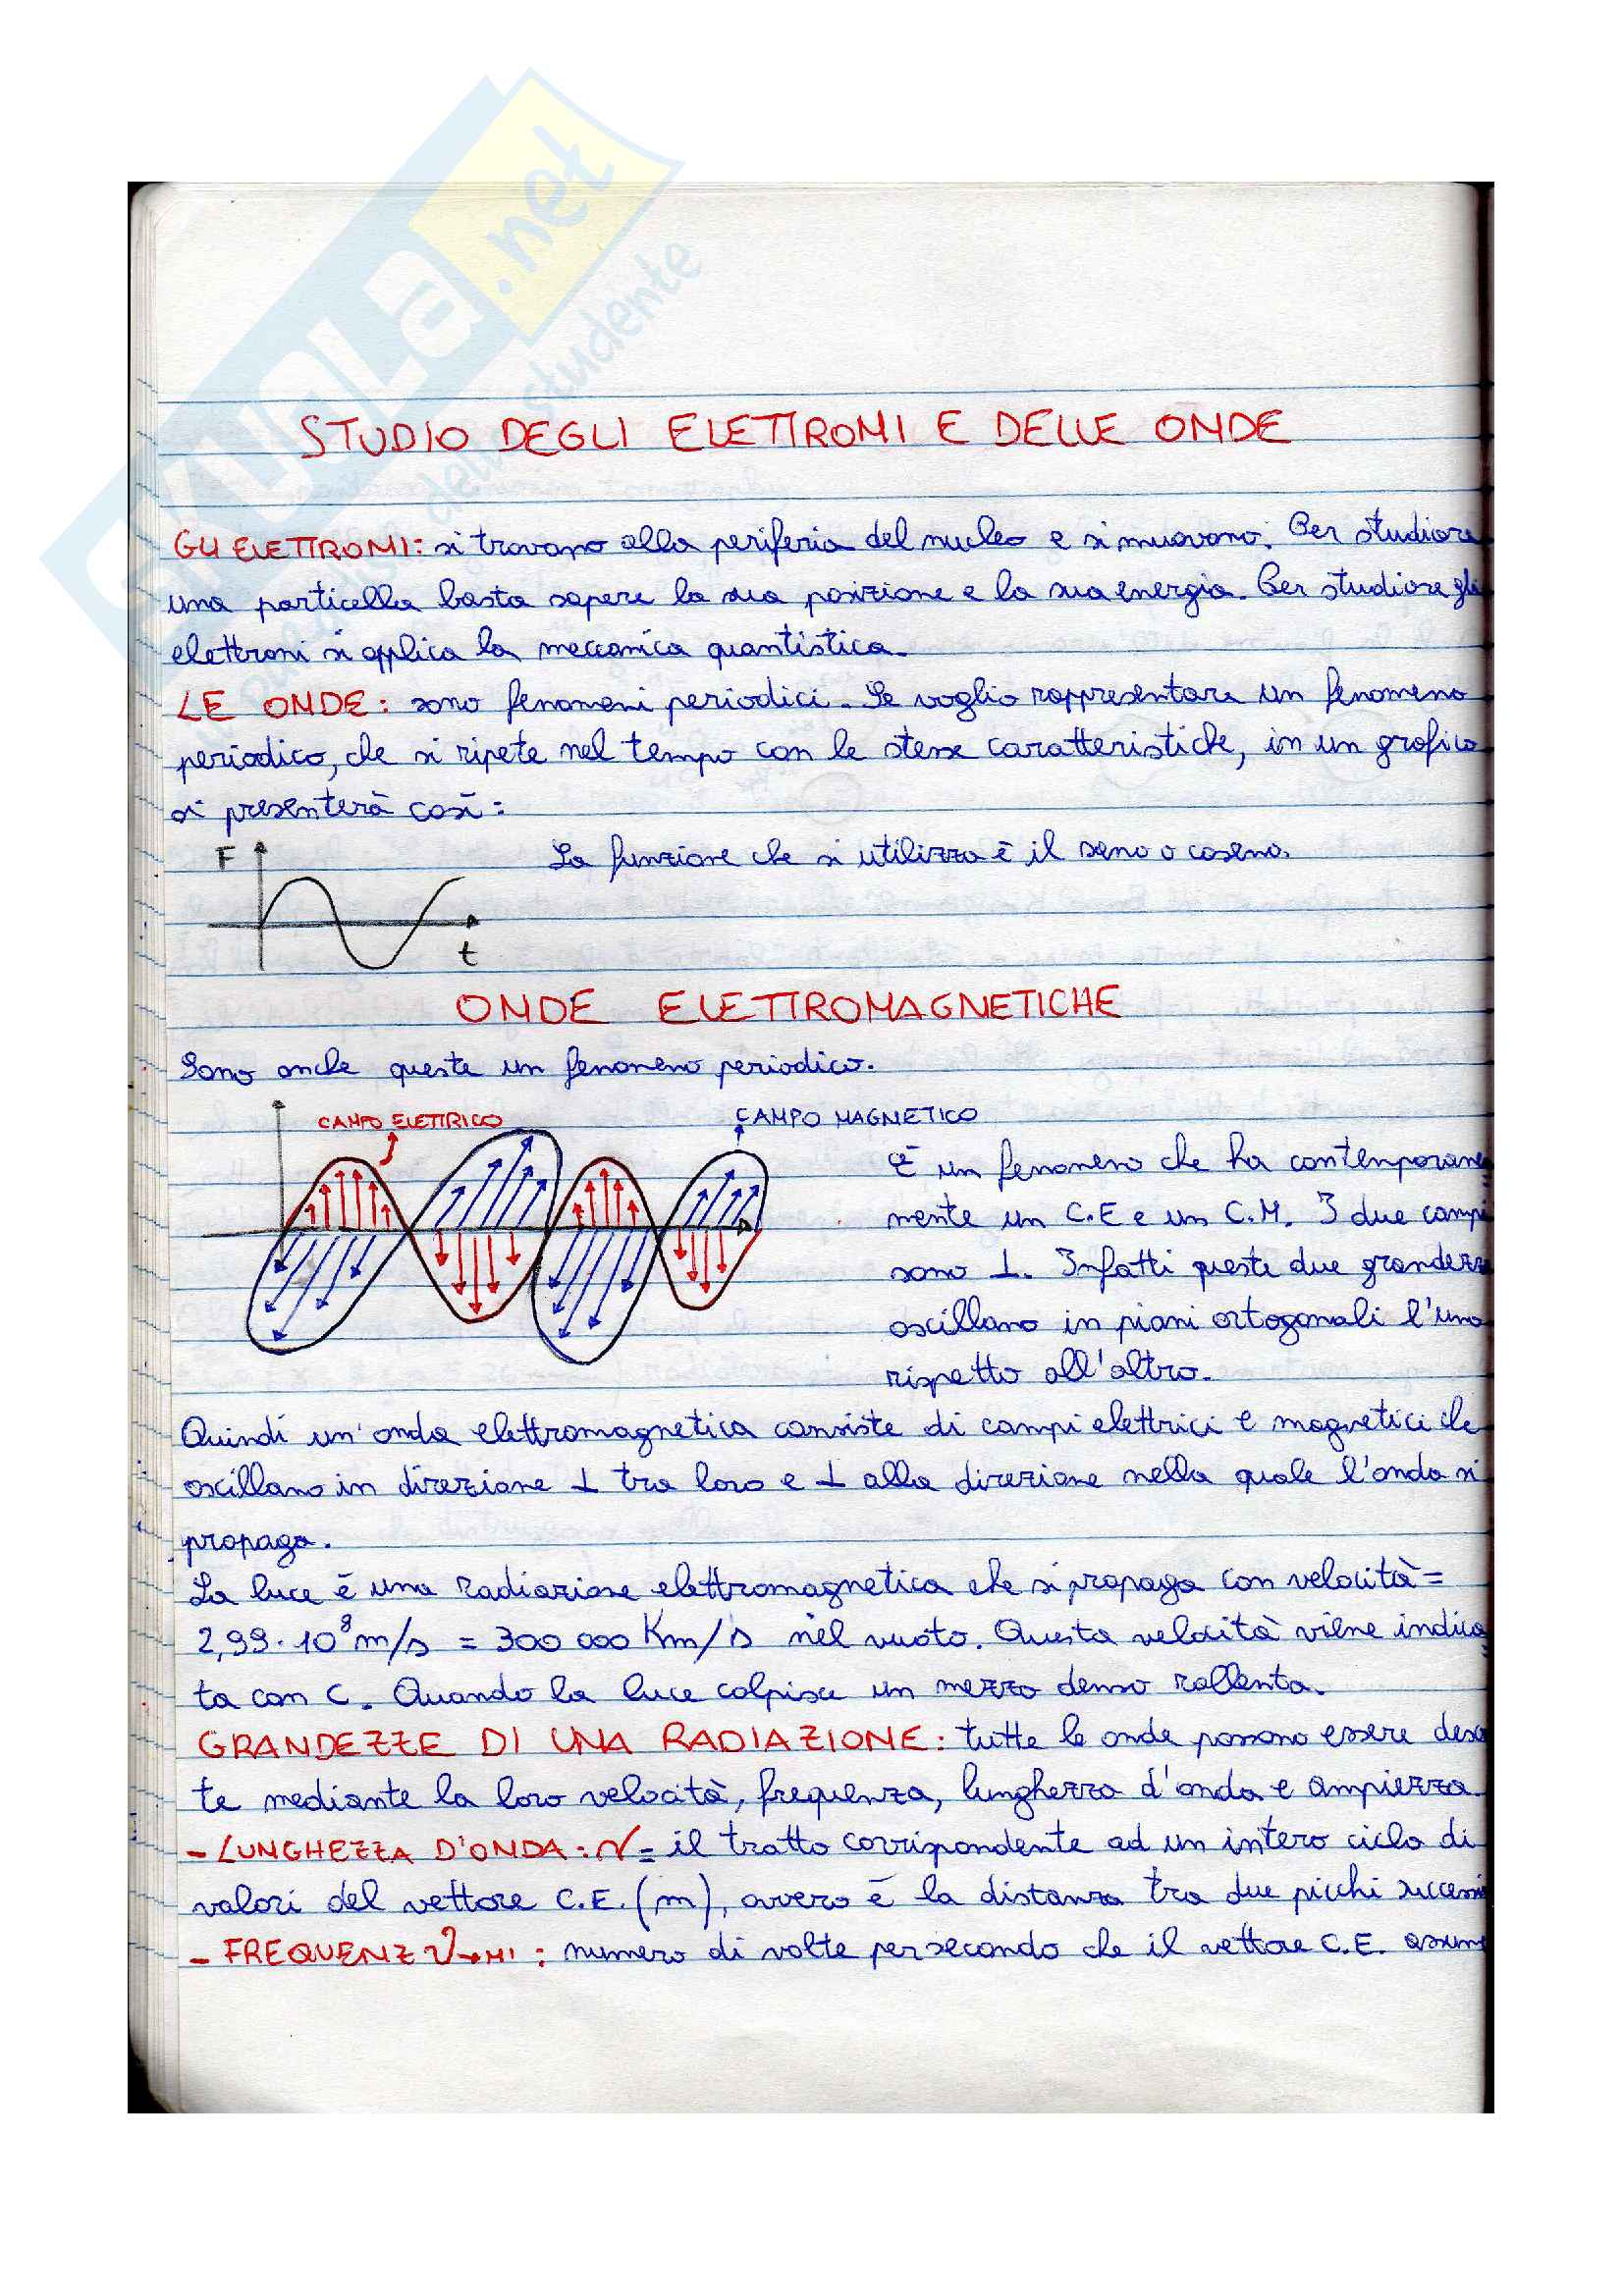 SKUOLa.net
dello studente
STUDIO DEGLI ELETTRONI E DELLE ONDE
GLI ELETTRONI: si trovano alla periferia del nucleo e si muovono. Per studiare
una particella basta sapere la sua posizione e la sua energia. Per studiare gli
elettroni si applica la meccanica quantistica.
LE ONDE: sono fenomeni periodici. Se voglio rappresentare un fenomeno
periodico, che si ripete nel tempo con le stesse caratteristiche, in un grafico
si presenterà così:
F
La funzione che si utilizza è il seno o coseno.
t
ONDE ELETTROMAGNETICHE
Sono anche queste un fenomeno periodico.
CAMPO ELETTRICO
CAMPO MAGNETICO
È un fenomeno che ha contemporanea
mente un C.E e un C.M. I due campi
sono ⊥. Infatti queste due grandezze
oscillano in piani ortogonali l'uno
rispetto all'altro.
Quindi un'onda elettromagnetica consiste di campi elettrici e magnetici che
oscillano in direzione ⊥ tra loro e ⊥ alla direzione nella quale l'onda si
propaga.
La luce è una radiazione elettromagnetica che si propaga con velocità =
2,99·10⁸ m/s = 300 000 Km/s nel vuoto. Questa velocità viene indica
ta con c. Quando la luce colpisce un mezzo denso rallenta.
GRANDEZZE DI UNA RADIAZIONE: tutte le onde possono essere desc
te mediante la loro velocità, frequenza, lunghezza d'onda e ampiezza.
- LUNGHEZZA D'ONDA: λ = il tratto corrispondente ad un intero ciclo di
valori del vettore C.E. (m), ovvero è la distanza tra due picchi successi
- FREQUENZ ν→NI: numero di volte per secondo che il vettore C.E. assum